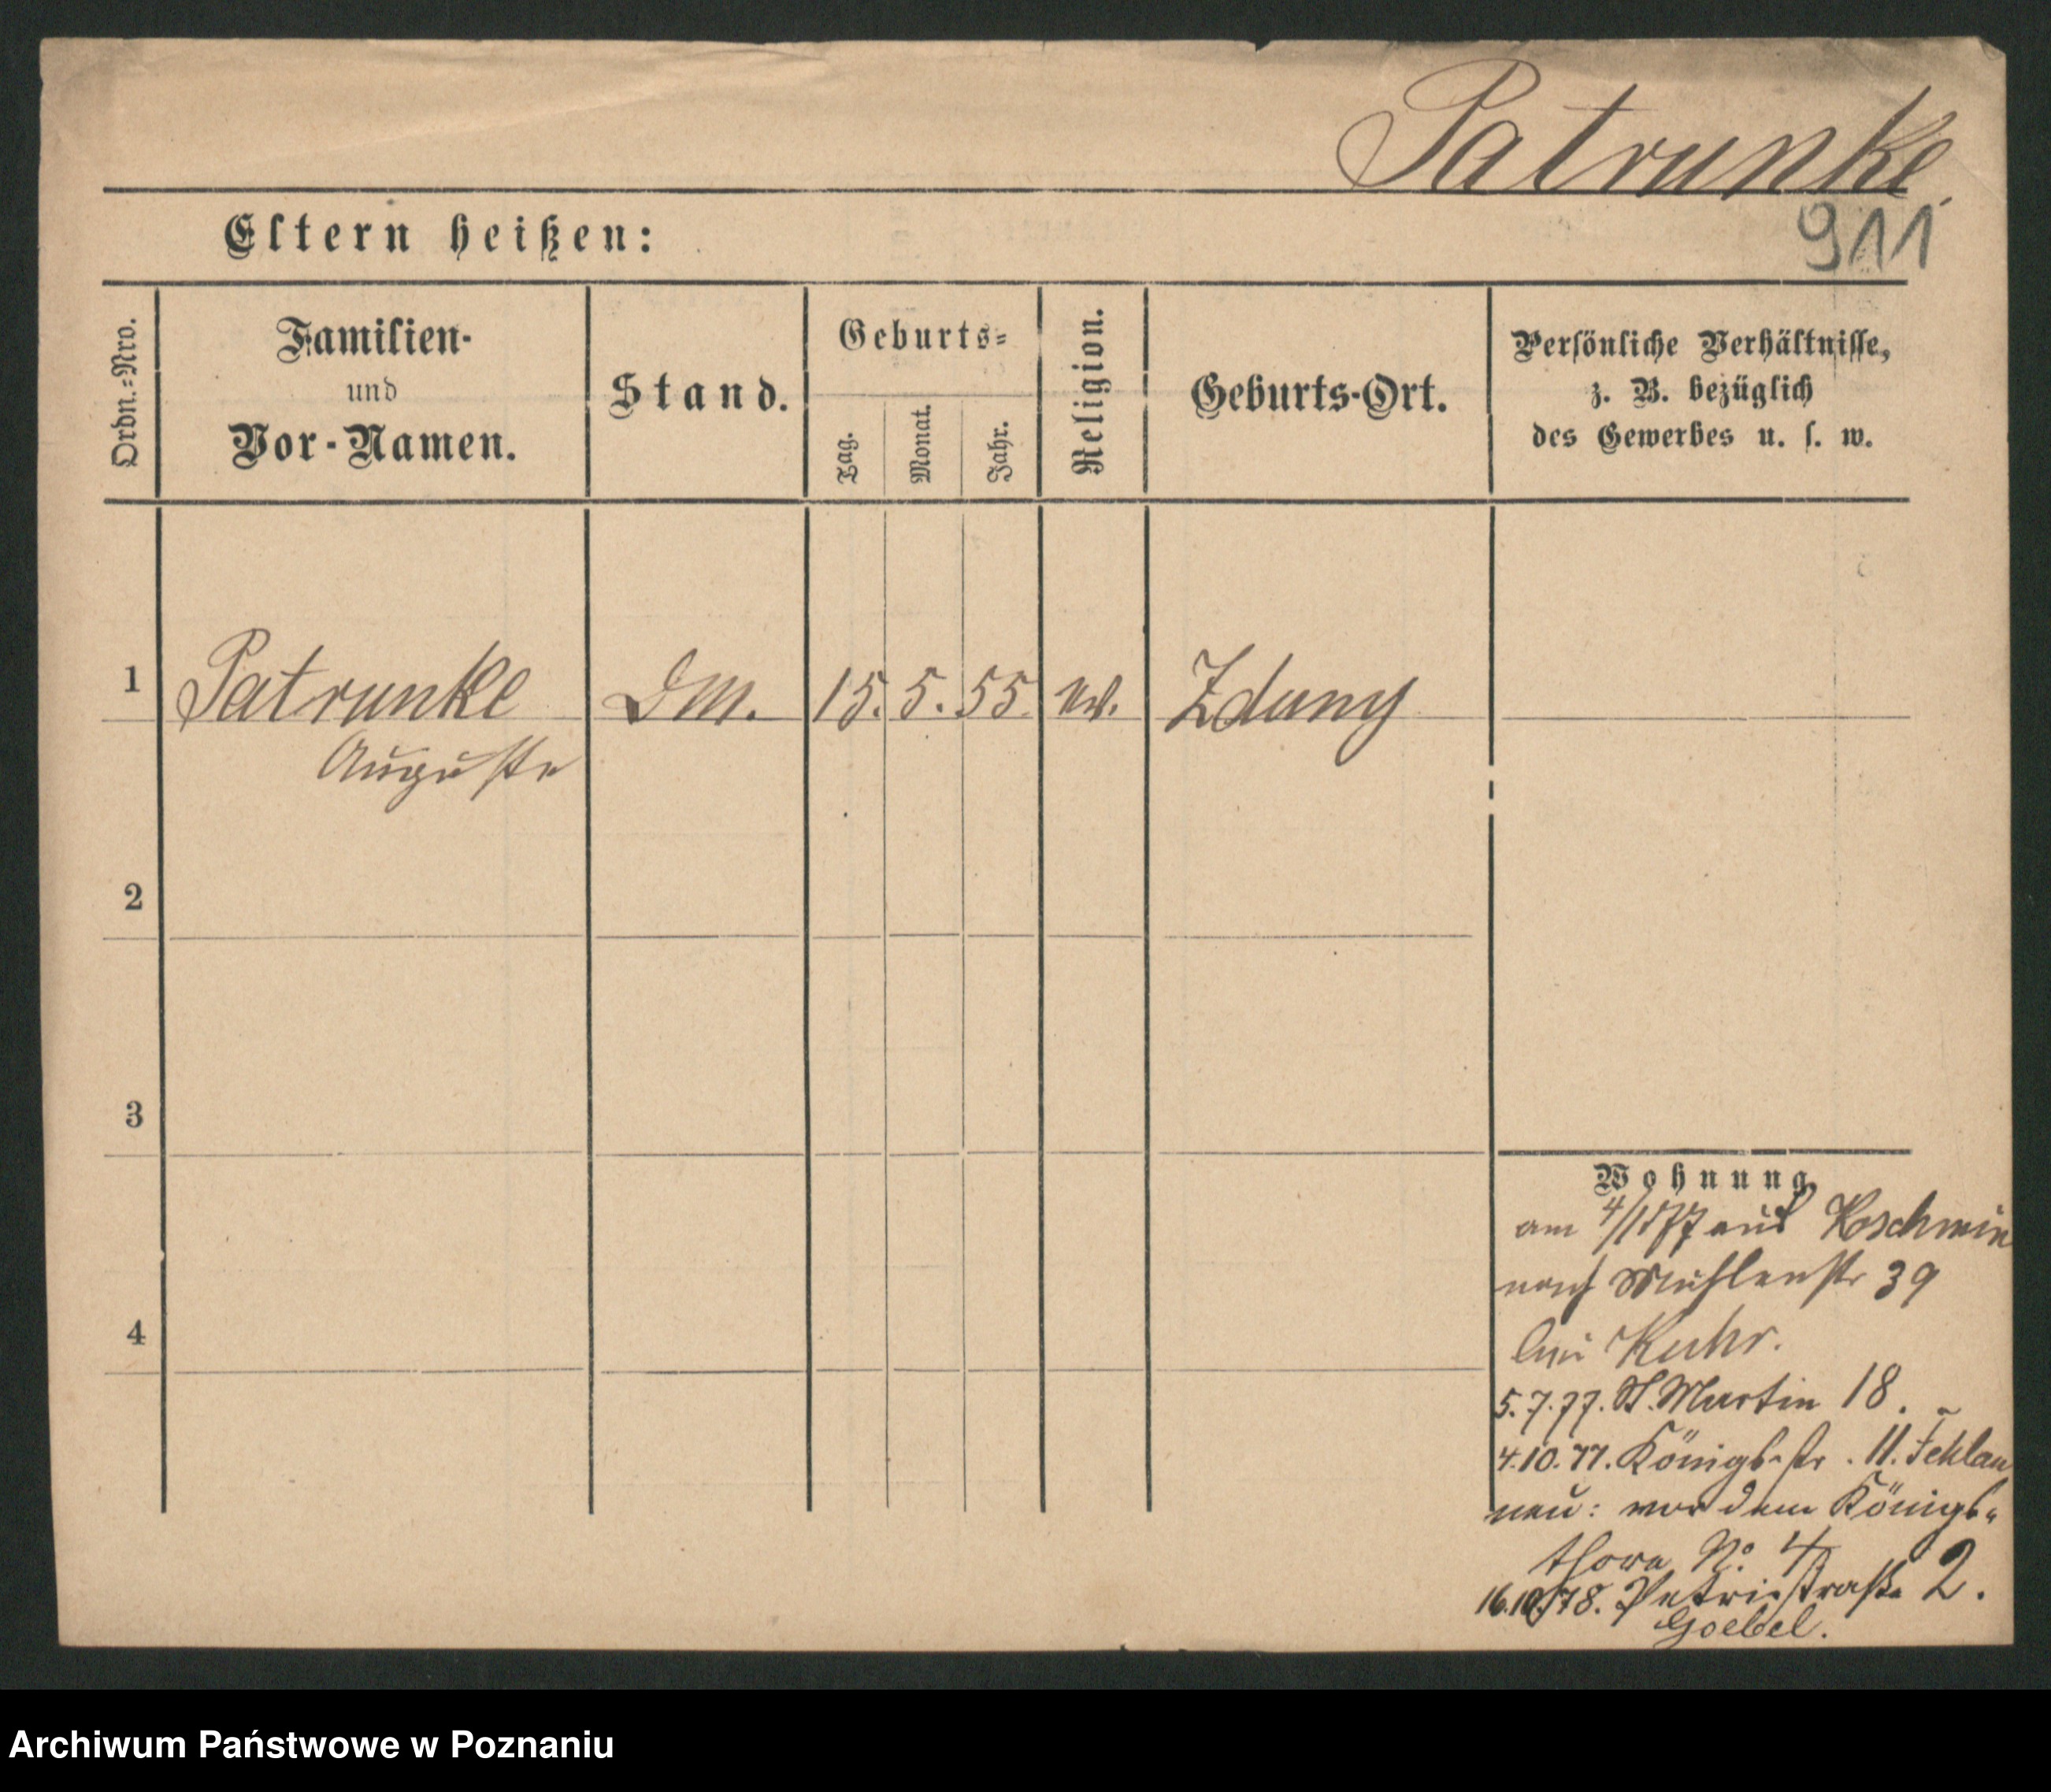 Patrunke.
911
Eltern heißen:
Ordn.=Nro.
Familien-
und
Vor-Namen.
Stand.
Geburts=
Tag.
Monat.
Jahr.
Religion.
Geburts-Ort.
Persönliche Verhältnisse,
z. B. bezüglich
des Gewerbes u. s. w.
1 Patrunke DM. 15. 5. 55. ev. Zduny
Auguste
2
3
4
Wohnung.
am 4/1 77 aus Koschmin
nach Mühlenstr 39
bei Kuhr.
5.7.77. St. Martin 18.
4.10.77. Königs-str. 11.
neu: vor dem Königs-
thore No. 4
16.10.78. Petristraße 2.
Goebel.
Archiwum Państwowe w Poznaniu